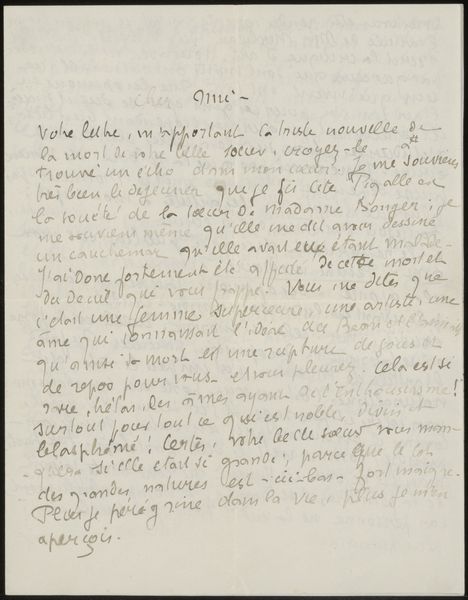 Cher Ami -
Votre lettre, m'apportant la triste nouvelle de
la mort de votre belle soeur, croyez-le a
trouvé un écho dans mon coeur. Je me souviens
très bien le dejeuner que je fis cité Pigalle en
la société de la soeur de madame Bonger ; je
me souviens même qu'elle me dit avoir dessiné
un cauchemar qu'elle avait eue étant malade.
J'ai donc fortement été affecté de cette mort et
du deuil qui vous frappe. Vous me dites que
c'était une femme superieure, une artiste, une
âme qui connaissait l'idéal du Beau et
qu'ainsi sa mort est une rupture de joies et
de repos pour vous et vous pleurez. Cela est si
rare, hélas, des âmes ayant de l'Enthousiasme !
surtout pour tout ce qui est noble, divin et
blasphémé ! Certes, votre belle soeur vous man-
quera si elle était si grande ; parce que le lot
des grandes natures est -ici-bas- fort maigre.
Plus je peregrine dans la vie, plus je m'en
aperçois.